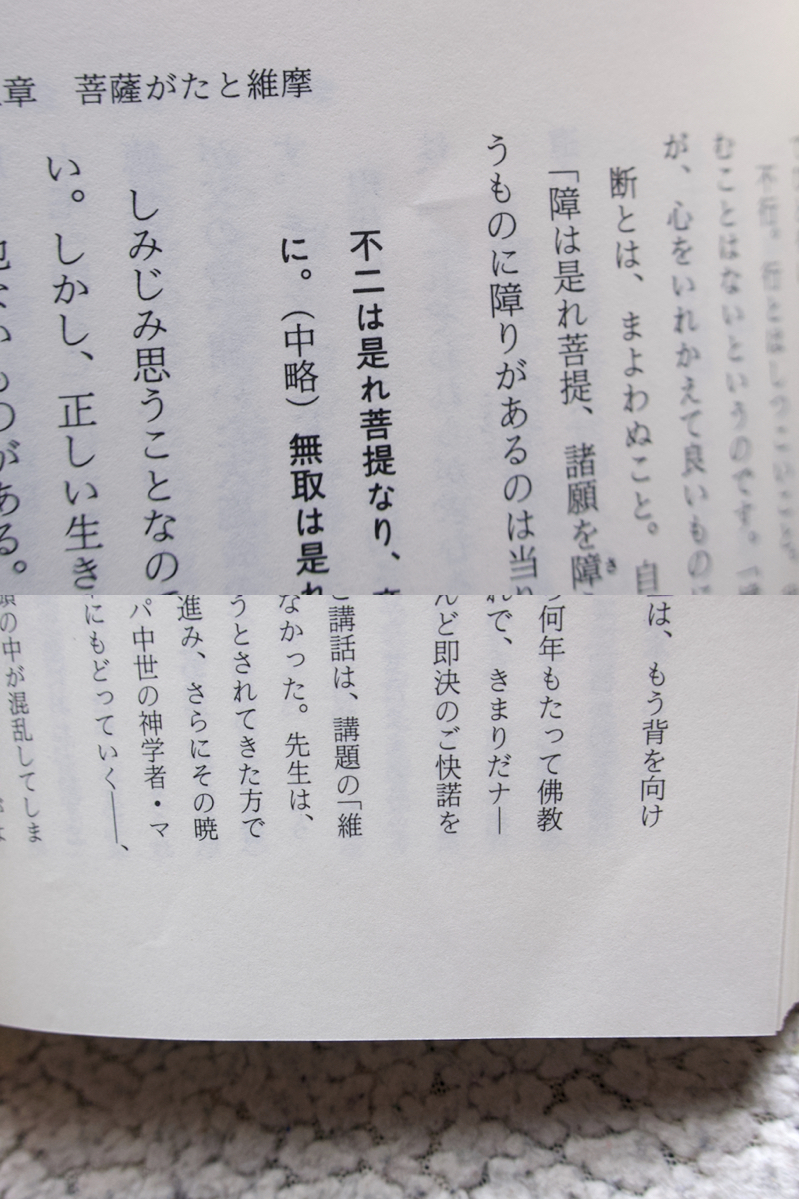 章 菩薩がたと維摩
不行。行とはしつこいこと。
むことはないというのです。「
が、心をいれかえて良いものに
断とは、まよわぬこと。自
「障は是れ菩提、諸願を障
うものに障りがあるのは当
不二は是れ菩提なり、
に。（中略）無取は是れ
しみじみ思うことなので
い。しかし、正しい生き
ないものがある。
は、もう背を向け
何年もたって佛教
れで、きまりだナ――
んど即決のご快諾を
講話は、講題の「維
なかった。先生は、
うとされてきた方で
進み、さらにその暁
パ中世の神学者・マ
にもどっていく――、
頭の中が混乱してしま